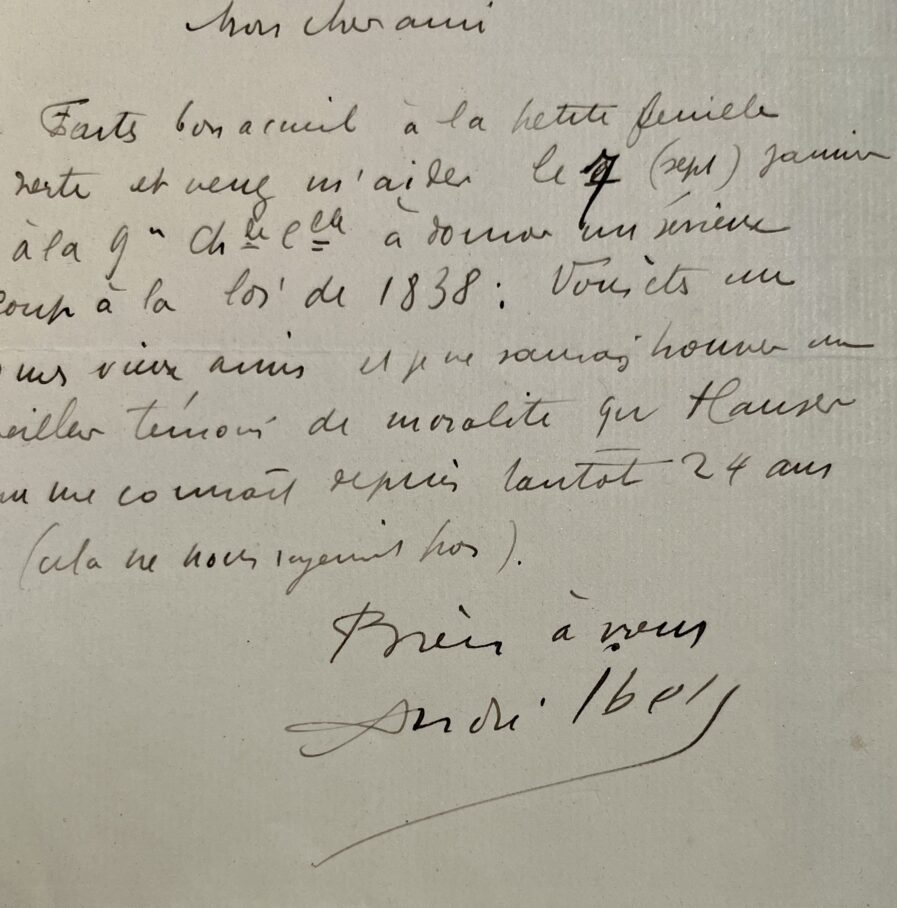 Mon cher ami
Faites bon accueil à la petite feuille
verte et venez m'aider le 7 (sept) janvier
à la 9e Chbre Celle à donner un sérieux
coup à la loi de 1838 : Vous êtes un
de mes vieux amis et je ne saurais trouver un
meilleur témoin de moralité qu Hauser
me connaît depuis tantôt 24 ans
(cela ne nous rajeunit pas).
Bien à vous
André Ibels